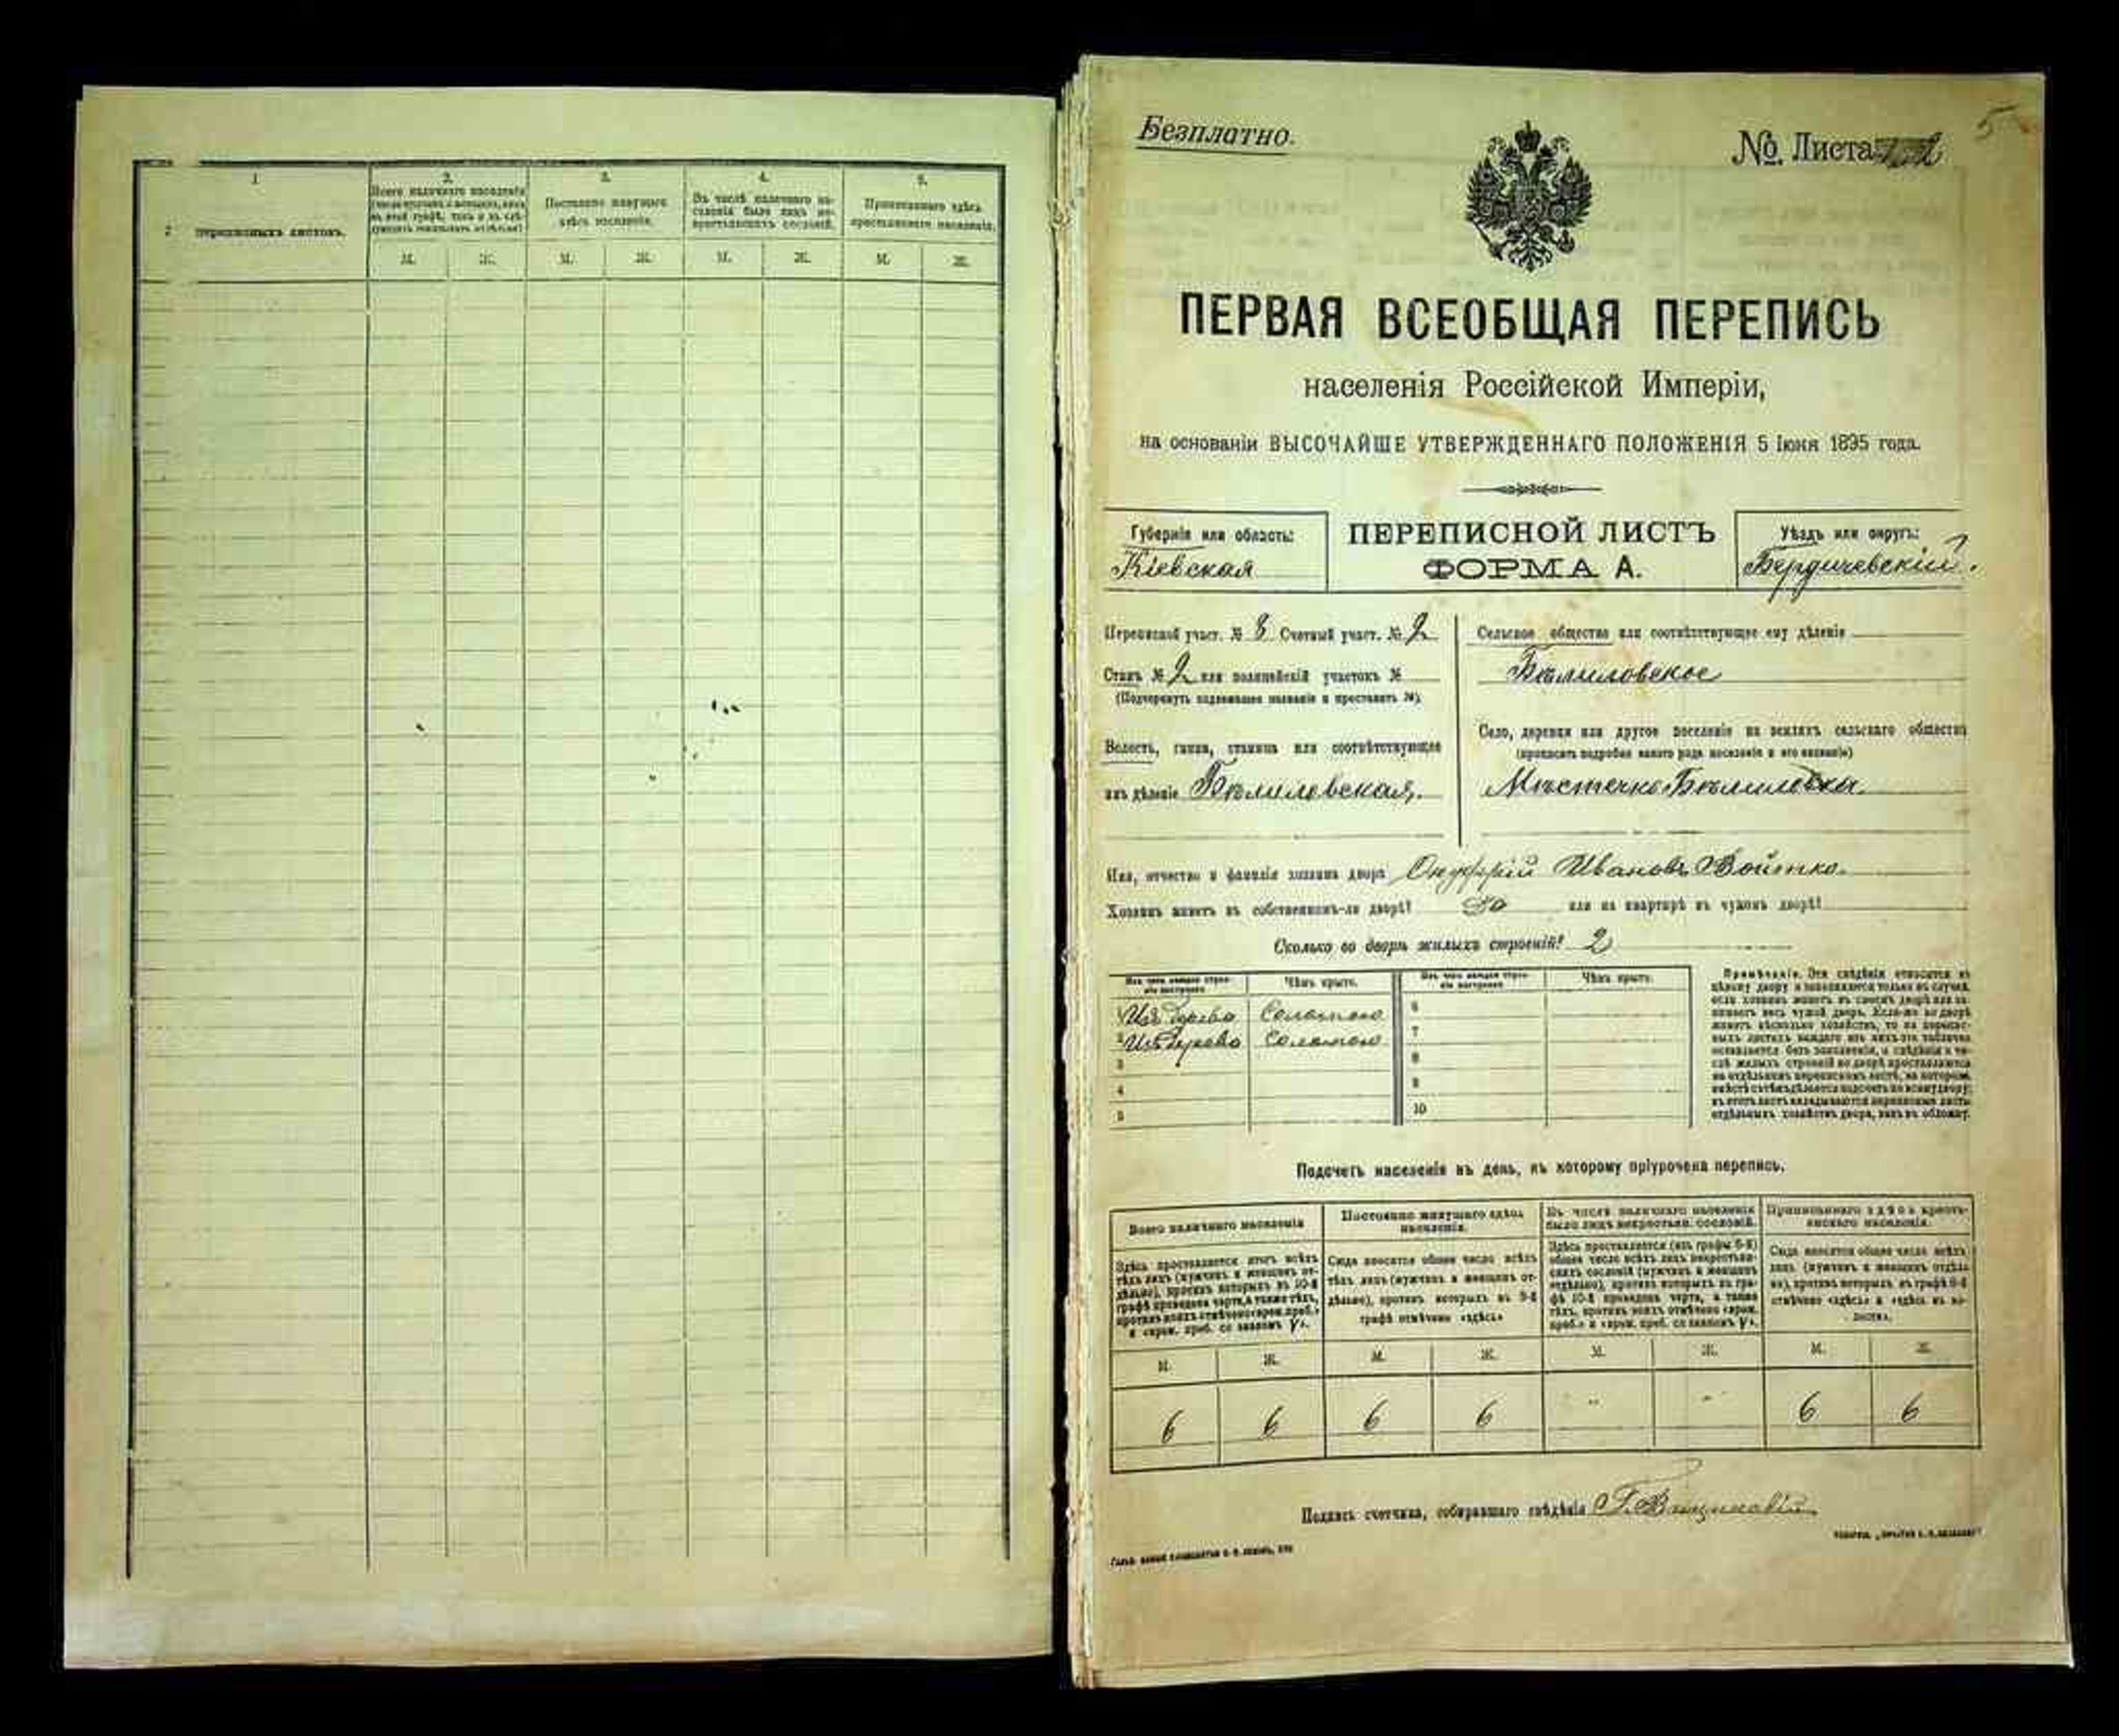 1
2.
3.
4.
5.
переписныхъ листовъ.
Всего наличнаго населенія
Постоянно живущаго
здѣсь населенія.
Въ числѣ наличнаго на-
селенія было лицъ не-
крестьянскихъ сословій.
Приписаннаго здѣсь
крестьянскаго населенія.
М. Ж. М. Ж. М. Ж. М. Ж.
5
Безплатно.
№ Листа
ПЕРВАЯ ВСЕОБЩАЯ ПЕРЕПИСЬ
населенія Россійской Имперіи,
на основаніи ВЫСОЧАЙШЕ УТВЕРЖДЕННАГО ПОЛОЖЕНІЯ 5 Іюня 1895 года.
Губернія или область:
Кіевская
ПЕРЕПИСНОЙ ЛИСТЪ
ФОРМА А.
Уѣздъ или округъ:
Бердичевскій.
Переписной участ. № 8 Счетный участ. № 2
Станъ № 2 или полицейскій участокъ №
(Подчеркнуть надлежащее названіе и проставить №).
Волость, гмина, станица или соотвѣтствующее
имъ дѣленіе Бѣлиловская.
Сельское общество или соотвѣтствующее ему дѣленіе
Бѣлиловское
Село, деревня или другое поселеніе на земляхъ сельскаго общества
(прописать подробно какого рода поселеніе и его названіе)
Мѣстечко Бѣлиловка.
Имя, отчество и фамилія хозяина двора Онуфрій Ивановъ Войтко.
Хозяинъ живетъ въ собственномъ-ли дворѣ? да или на квартирѣ въ чужомъ дворѣ?
Сколько во дворѣ жилыхъ строеній? 2
Изъ чего каждое строе-
ніе построено
Чѣмъ крыто.
Изъ чего каждое строе-
ніе построено
Чѣмъ крыто.
1 Изъ дерева Соломою
2 Изъ дерева Соломою
3
4
5
6
7
8
9
10
Примѣчаніе. Эти свѣдѣнія относятся къ
цѣлому двору и заполняются только въ случаѣ,
если хозяинъ живетъ въ своемъ дворѣ или за-
нимаетъ весь чужой дворъ. Если-же во дворѣ
живетъ нѣсколько хозяйствъ, то на перепис-
ныхъ листахъ каждаго изъ нихъ эта табличка
оставляется безъ заполненія, а свѣдѣнія о чи-
слѣ жилыхъ строеній во дворѣ проставляются
на отдѣльномъ переписномъ листѣ, на которомъ
вмѣстѣ съ тѣмъ дѣлается подсчетъ по всему двору;
въ этотъ листъ вкладываются переписные листы
отдѣльныхъ хозяйствъ двора, какъ въ обложку.
Подсчетъ населенія въ день, къ которому пріурочена перепись.
Всего наличнаго населенія
Постоянно живущаго здѣсь
населенія.
Въ числѣ наличнаго населенія
было лицъ некрестьян. сословій.
Приписаннаго здѣсь кресть-
янскаго населенія.
Здѣсь проставляется итогъ всѣхъ
тѣхъ лицъ (мужчинъ и женщинъ от-
дѣльно), противъ которыхъ въ 10-й
графѣ проведена черта, а также тѣхъ,
противъ коихъ отмѣчено «врем. преб.»
и «врем. преб. со знакомъ V».
Сюда вносится общее число всѣхъ
тѣхъ лицъ (мужчинъ и женщинъ от-
дѣльно), противъ которыхъ въ 9-й
графѣ отмѣчено «здѣсь»
Здѣсь проставляется (изъ графы 6-й)
общее число всѣхъ лицъ некрестьян-
скихъ сословій (мужчинъ и женщинъ
отдѣльно), противъ которыхъ въ гра-
фѣ 10-й проведена черта, а также
тѣхъ, противъ коихъ отмѣчено «врем.
преб.» и «врем. преб. со знакомъ V».
Сюда вносится общее число всѣхъ
лицъ (мужчинъ и женщинъ отдѣль-
но), противъ которыхъ въ графѣ 8-й
отмѣчено «здѣсь» и «здѣсь въ во-
лости».
М. Ж. М. Ж. М. Ж. М. Ж.
6 6 6 6 " " 6 6
Подпись счетчика, собиравшаго свѣдѣнія